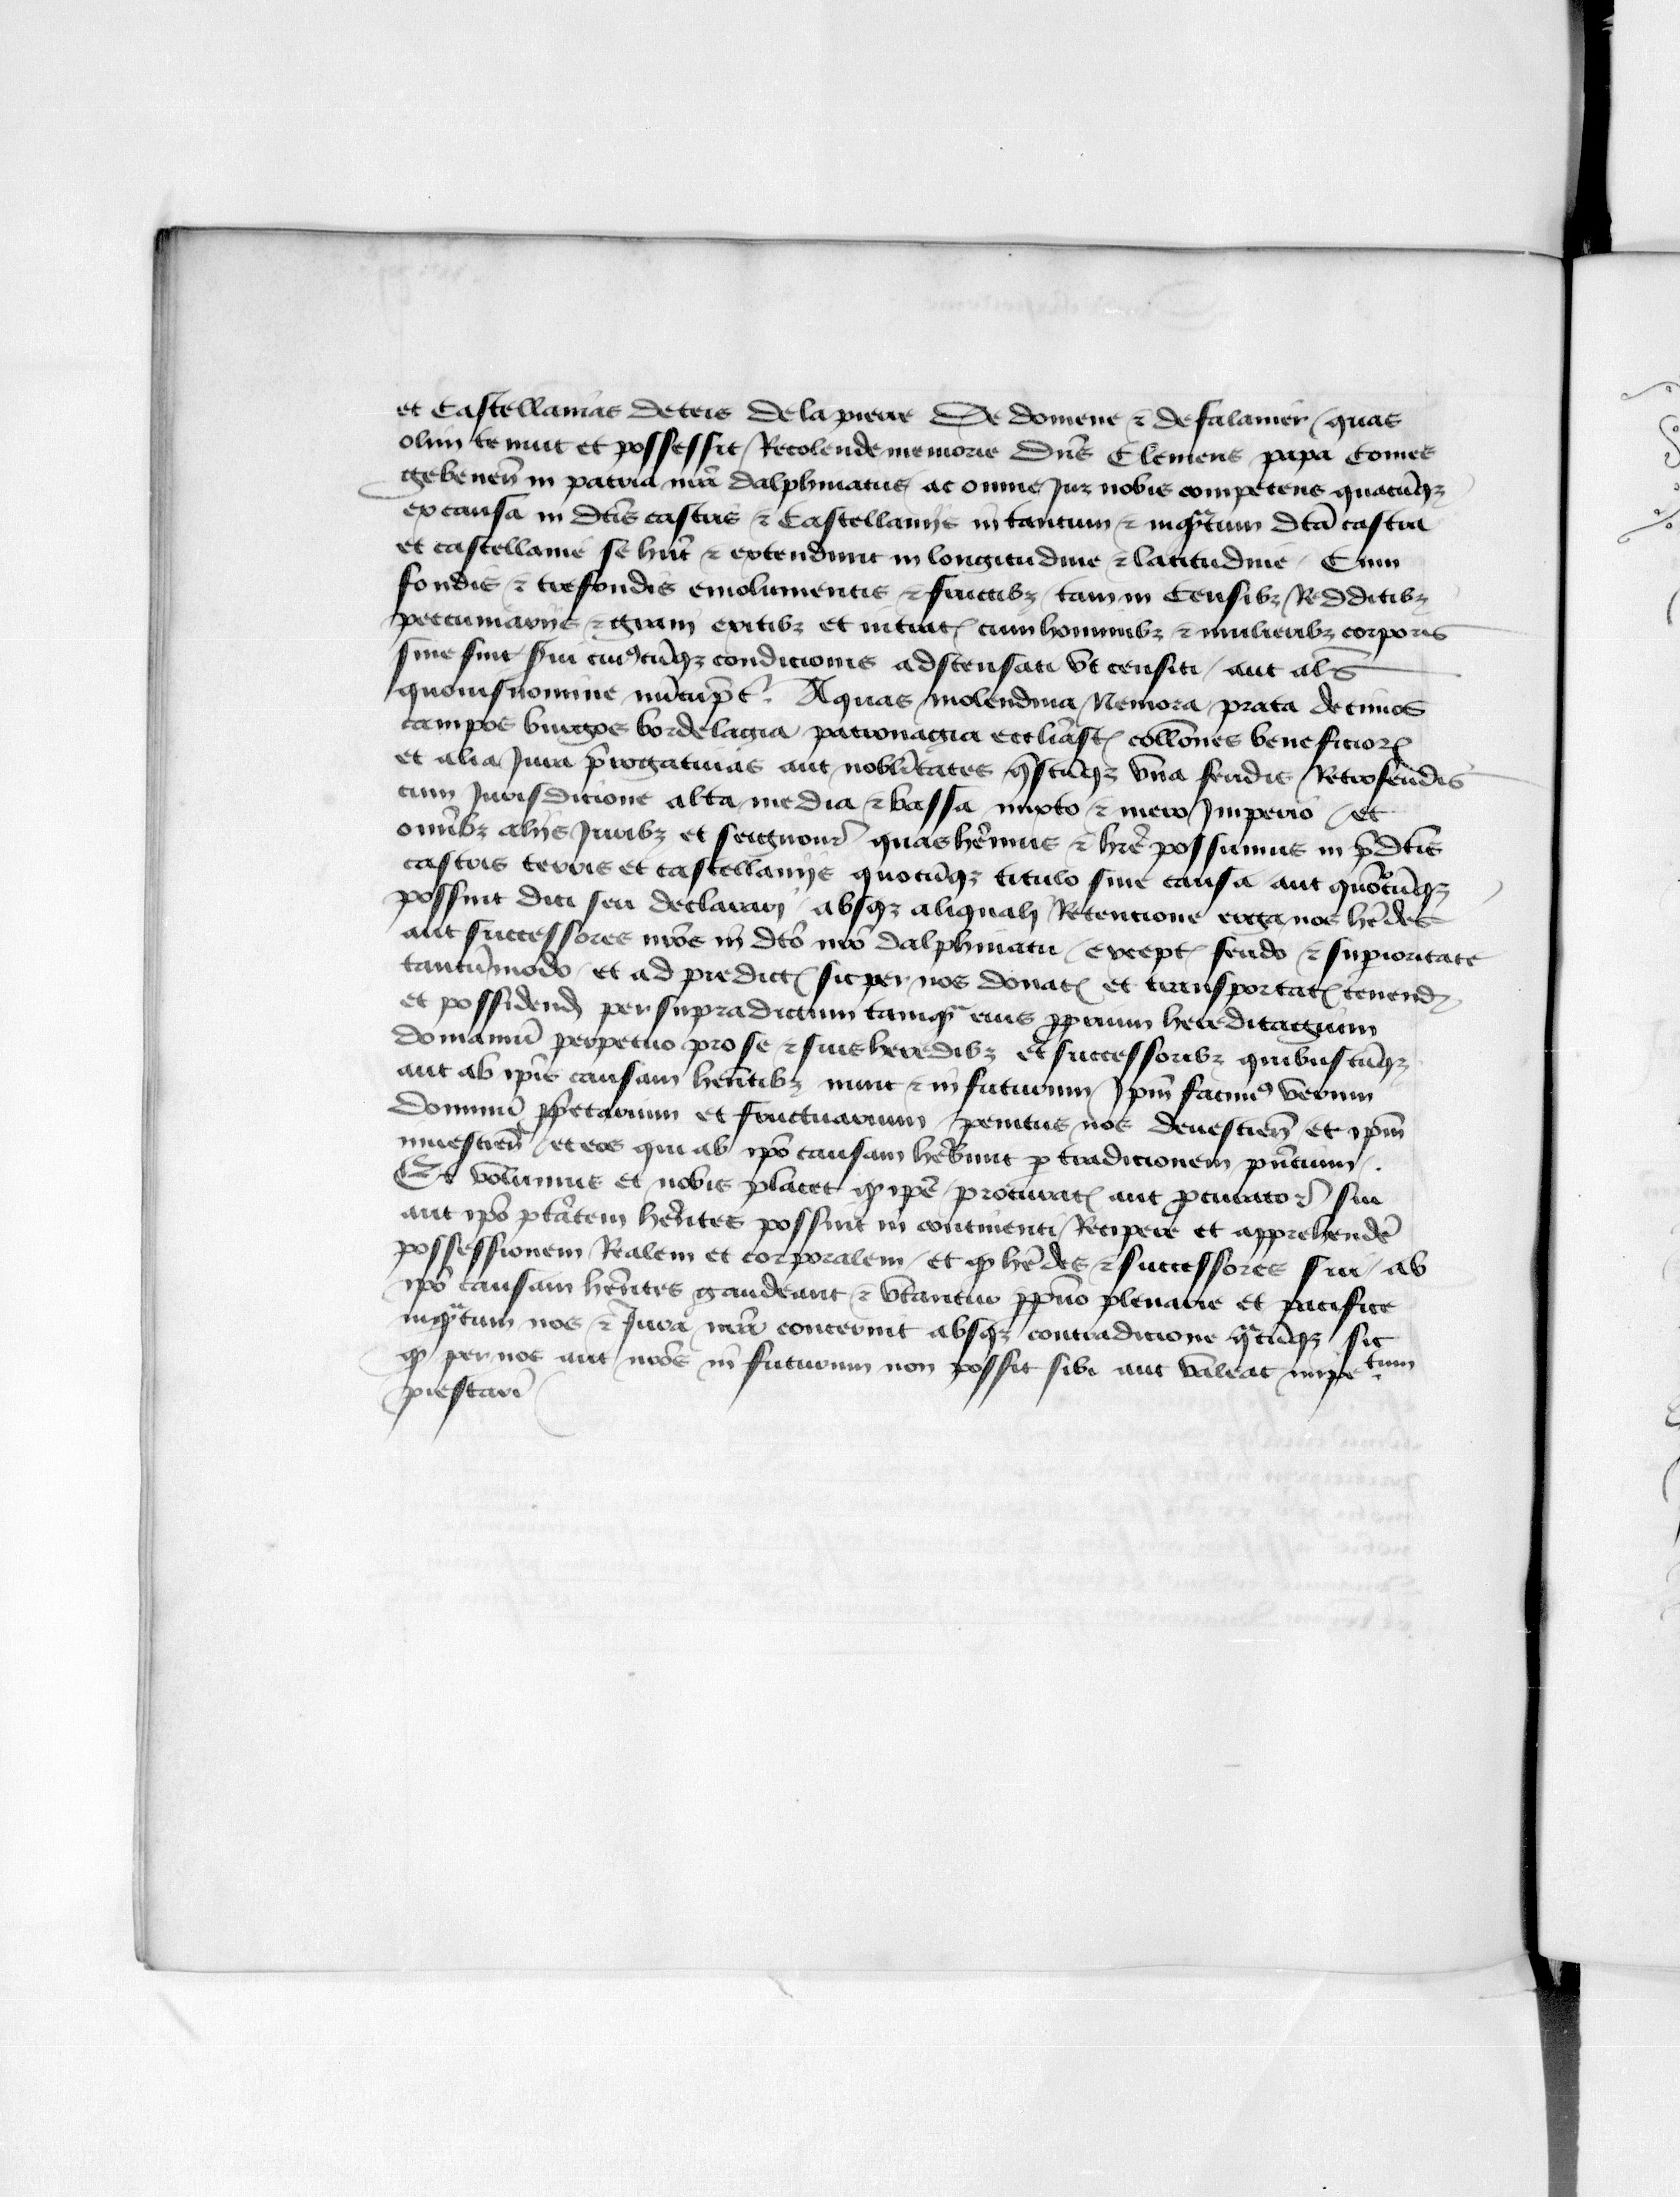 et Castellanias de teis De la pierre De domene ⁊ de falauier / quas
olim tenuit et possessit / Recolende memorie Dn̄s Clemens papa Comes
gebenen̄ in patria nr̄a dalphinatus ac omne Jus nobis competens quacūqꝫ
ex causa in dc̄is castris ⁊ Castellaniis in tantum ⁊ inqͣtum dc̄a castra
et castellanie se hn̄t ⁊ extendunt in longitudine ⁊ latitudine / Cum
fondis ⁊ trefondis emolumentis ⁊ fructibꝫ / tam in Censibꝫ / Redditibꝫ
peccuniariis ⁊ gͣnis exitibꝫ et introit̄ cum hominibꝫ ⁊ mulieribꝫ corporis
siue sint sui cuiꝰcūqꝫ condicionis adscensati vt censiti / aut al̄s
quouis nomine nūcupēt. Aquas / molendina / Nemora / prata decimos
campos burgos bordelagia patronagia eccliāst̄ coll̄ones beneficioꝝ
et alia Jura p̄rogatiuas aut nobl̄itates qͣscūqꝫ vn̄a feudis / Retrofeudis
cum Jurisdicione alta media ⁊ bassa mixto ⁊ mero Jmperio / et
om̄ibꝫ aliis Juribꝫ et seignour̄ quas hēmus ⁊ hr̄e possumus in p̄dc̄is
castris terris et castellaniis quocūqꝫ titulo siue causa aut quōcūqꝫ
possint dici seu declarari absqꝫ aliquali Retencione erga nos hēdes
aut successores nr̄os in dc̄o nr̄o dalphinatu / except̄ feudo ⁊ supioritate
tantūmodo / et ad predict̄ sic per nos donat̄ et transportat̄ tenend̄
et possidend̄ per supradictum tamqͣ eius ꝓprium hereditagium
domaniū perpetuo pro se ⁊ suis heredibꝫ et successoribꝫ quibuscūqꝫ
aut ab ip̄is causam hēntibꝫ nunc ⁊ in futurum / Jp̄m facimꝰ verum
Dominū ꝓp̄etarium et fructuarium / penitus nos deuestien̄ et ip̄m
inuestien̄ / et eos qui ab ip̄o causam hēbunt p̱ tradicionem pn̄cium /.
Et volumus et nobis placet ꝙ ip̄e / procurat̄ aut ꝓcurator̄ sui
aut ip̄o ptātem hēntes possint in continenti / Recipere et apprehendē
possessionem / Realem et corporalem / et ꝙ hēdes ⁊ successores sui / ab
ip̄o causam hēntes gaudeant ⁊ vtantur ꝓp̄uo plenarie et pacifice
inqͣtum nos ⁊ Jura nr̄a concernit absqꝫ contradicione qͣcūqꝫ sic
ꝙ per nos aut nr̄os in futurum non possit sibi aut valeat impetum
prestari